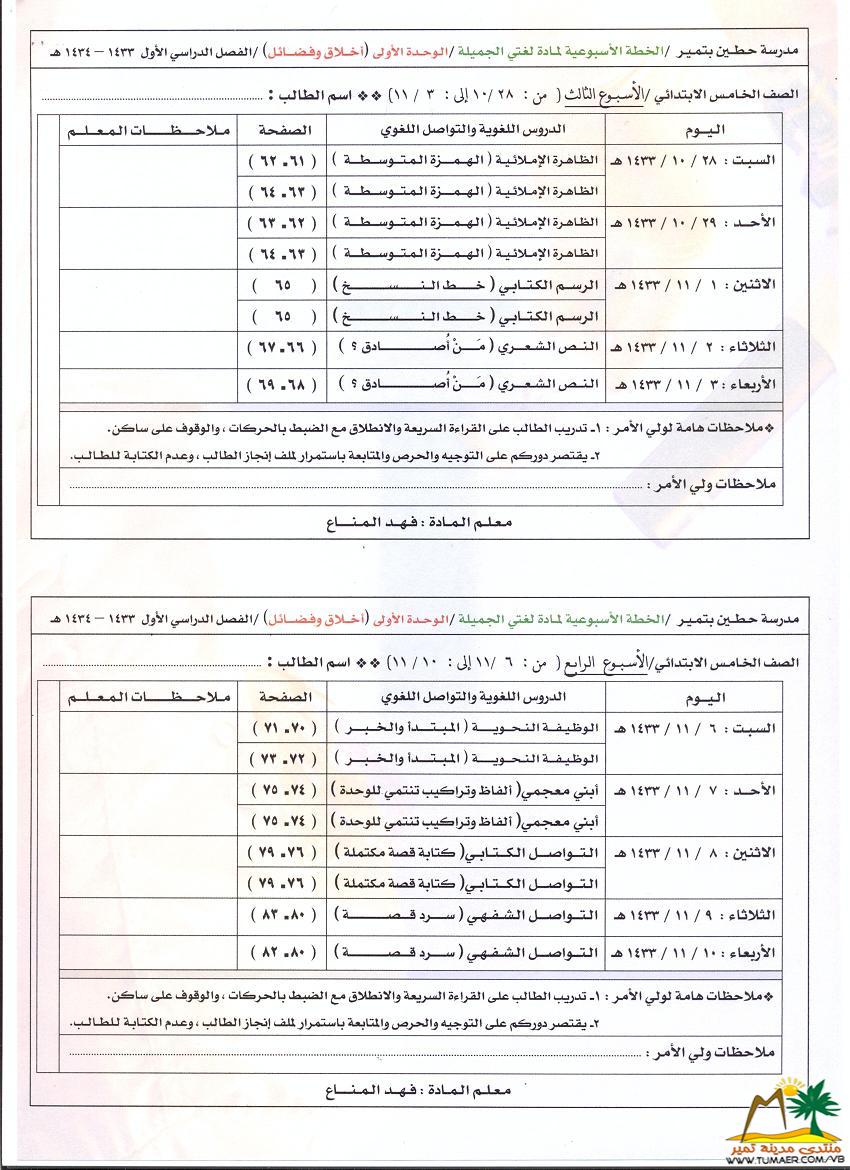 مدرسة حطين بتمير / الخطة الأسبوعية لمادة لغتي الجميلة / الوحدة الأولى (أخلاق وفضائل) / الفصل الدراسي الأول ١٤٣٣ – ١٤٣٤ هـ
الصف الخامس الابتدائي / الأسبوع الثالث ( من : ١٠/٢٨ إلى : ٣ / ١١ ) ❖❖ اسم الطالب : ........................
اليوم الدروس اللغوية والتواصل اللغوي الصفحة ملاحظات المعلم
السبت : ٢٨ / ١٠ / ١٤٣٣ هـ الظاهرة الإملائية ( الهمزة المتوسطة ) ( ٦١ـ ٦٢ )
الظاهرة الإملائية ( الهمزة المتوسطة ) ( ٦٣ـ ٦٤ )
الأحد : ٢٩ / ١٠ / ١٤٣٣ هـ الظاهرة الإملائية ( الهمزة المتوسطة ) ( ٦٢ـ ٦٣ )
الظاهرة الإملائية ( الهمزة المتوسطة ) ( ٦٣ـ ٦٤ )
الاثنين : ١ / ١١ / ١٤٣٣ هـ الرسم الكتابي ( خط النسخ ) ( ٦٥ )
الرسم الكتابي ( خط النسخ ) ( ٦٥ )
الثلاثاء : ٢ / ١١ / ١٤٣٣ هـ النص الشعري ( مَنْ أُصادق ؟ ) ( ٦٦ـ ٦٧ )
الأربعاء : ٣ / ١١ / ١٤٣٣ هـ النص الشعري ( مَنْ أُصادق ؟ ) ( ٦٨ـ ٦٩ )
❖ ملاحظات هامة لولي الأمر : ١ـ تدريب الطالب على القراءة السريعة والانطلاق مع الضبط بالحركات ، والوقوف على ساكن.
٢ـ يقتصر دوركم على التوجيه والحرص والمتابعة باستمرار لملف إنجاز الطالب ، وعدم الكتابة للطالب.
ملاحظات ولي الأمر : ........................
معلم المادة : فهد المناع
مدرسة حطين بتمير / الخطة الأسبوعية لمادة لغتي الجميلة / الوحدة الأولى (أخلاق وفضائل) / الفصل الدراسي الأول ١٤٣٣ – ١٤٣٤ هـ
الصف الخامس الابتدائي / الأسبوع الرابع ( من : ٦ /١١ إلى : ١٠ / ١١ ) ❖❖ اسم الطالب : ........................
اليوم الدروس اللغوية والتواصل اللغوي الصفحة ملاحظات المعلم
السبت : ٦ / ١١ / ١٤٣٣ هـ الوظيفة النحوية ( المبتدأ والخبر ) ( ٧٠ـ ٧١ )
الوظيفة النحوية ( المبتدأ والخبر ) ( ٧٢ـ ٧٣ )
الأحد : ٧ / ١١ / ١٤٣٣ هـ أبني معجمي( ألفاظ وتراكيب تنتمي للوحدة ) ( ٧٤ـ ٧٥ )
أبني معجمي( ألفاظ وتراكيب تنتمي للوحدة ) ( ٧٤ـ ٧٥ )
الاثنين : ٨ / ١١ / ١٤٣٣ هـ التواصل الكتابي( كتابة قصة مكتملة ) ( ٧٦ـ ٧٩ )
التواصل الكتابي( كتابة قصة مكتملة ) ( ٧٦ـ ٧٩ )
الثلاثاء : ٩ / ١١ / ١٤٣٣ هـ التواصل الشفهي ( سرد قصة ) ( ٨٠ـ ٨٣ )
الأربعاء : ١٠ / ١١ / ١٤٣٣ هـ التواصل الشفهي ( سرد قصة ) ( ٨٠ـ ٨٢ )
❖ ملاحظات هامة لولي الأمر : ١ـ تدريب الطالب على القراءة السريعة والانطلاق مع الضبط بالحركات ، والوقوف على ساكن.
٢ـ يقتصر دوركم على التوجيه والحرص والمتابعة باستمرار لملف إنجاز الطالب ، وعدم الكتابة للطالب.
ملاحظات ولي الأمر : ........................
معلم المادة : فهد المناع
منتدى مدينة تمير
WWW.TUMAER.COM/VB